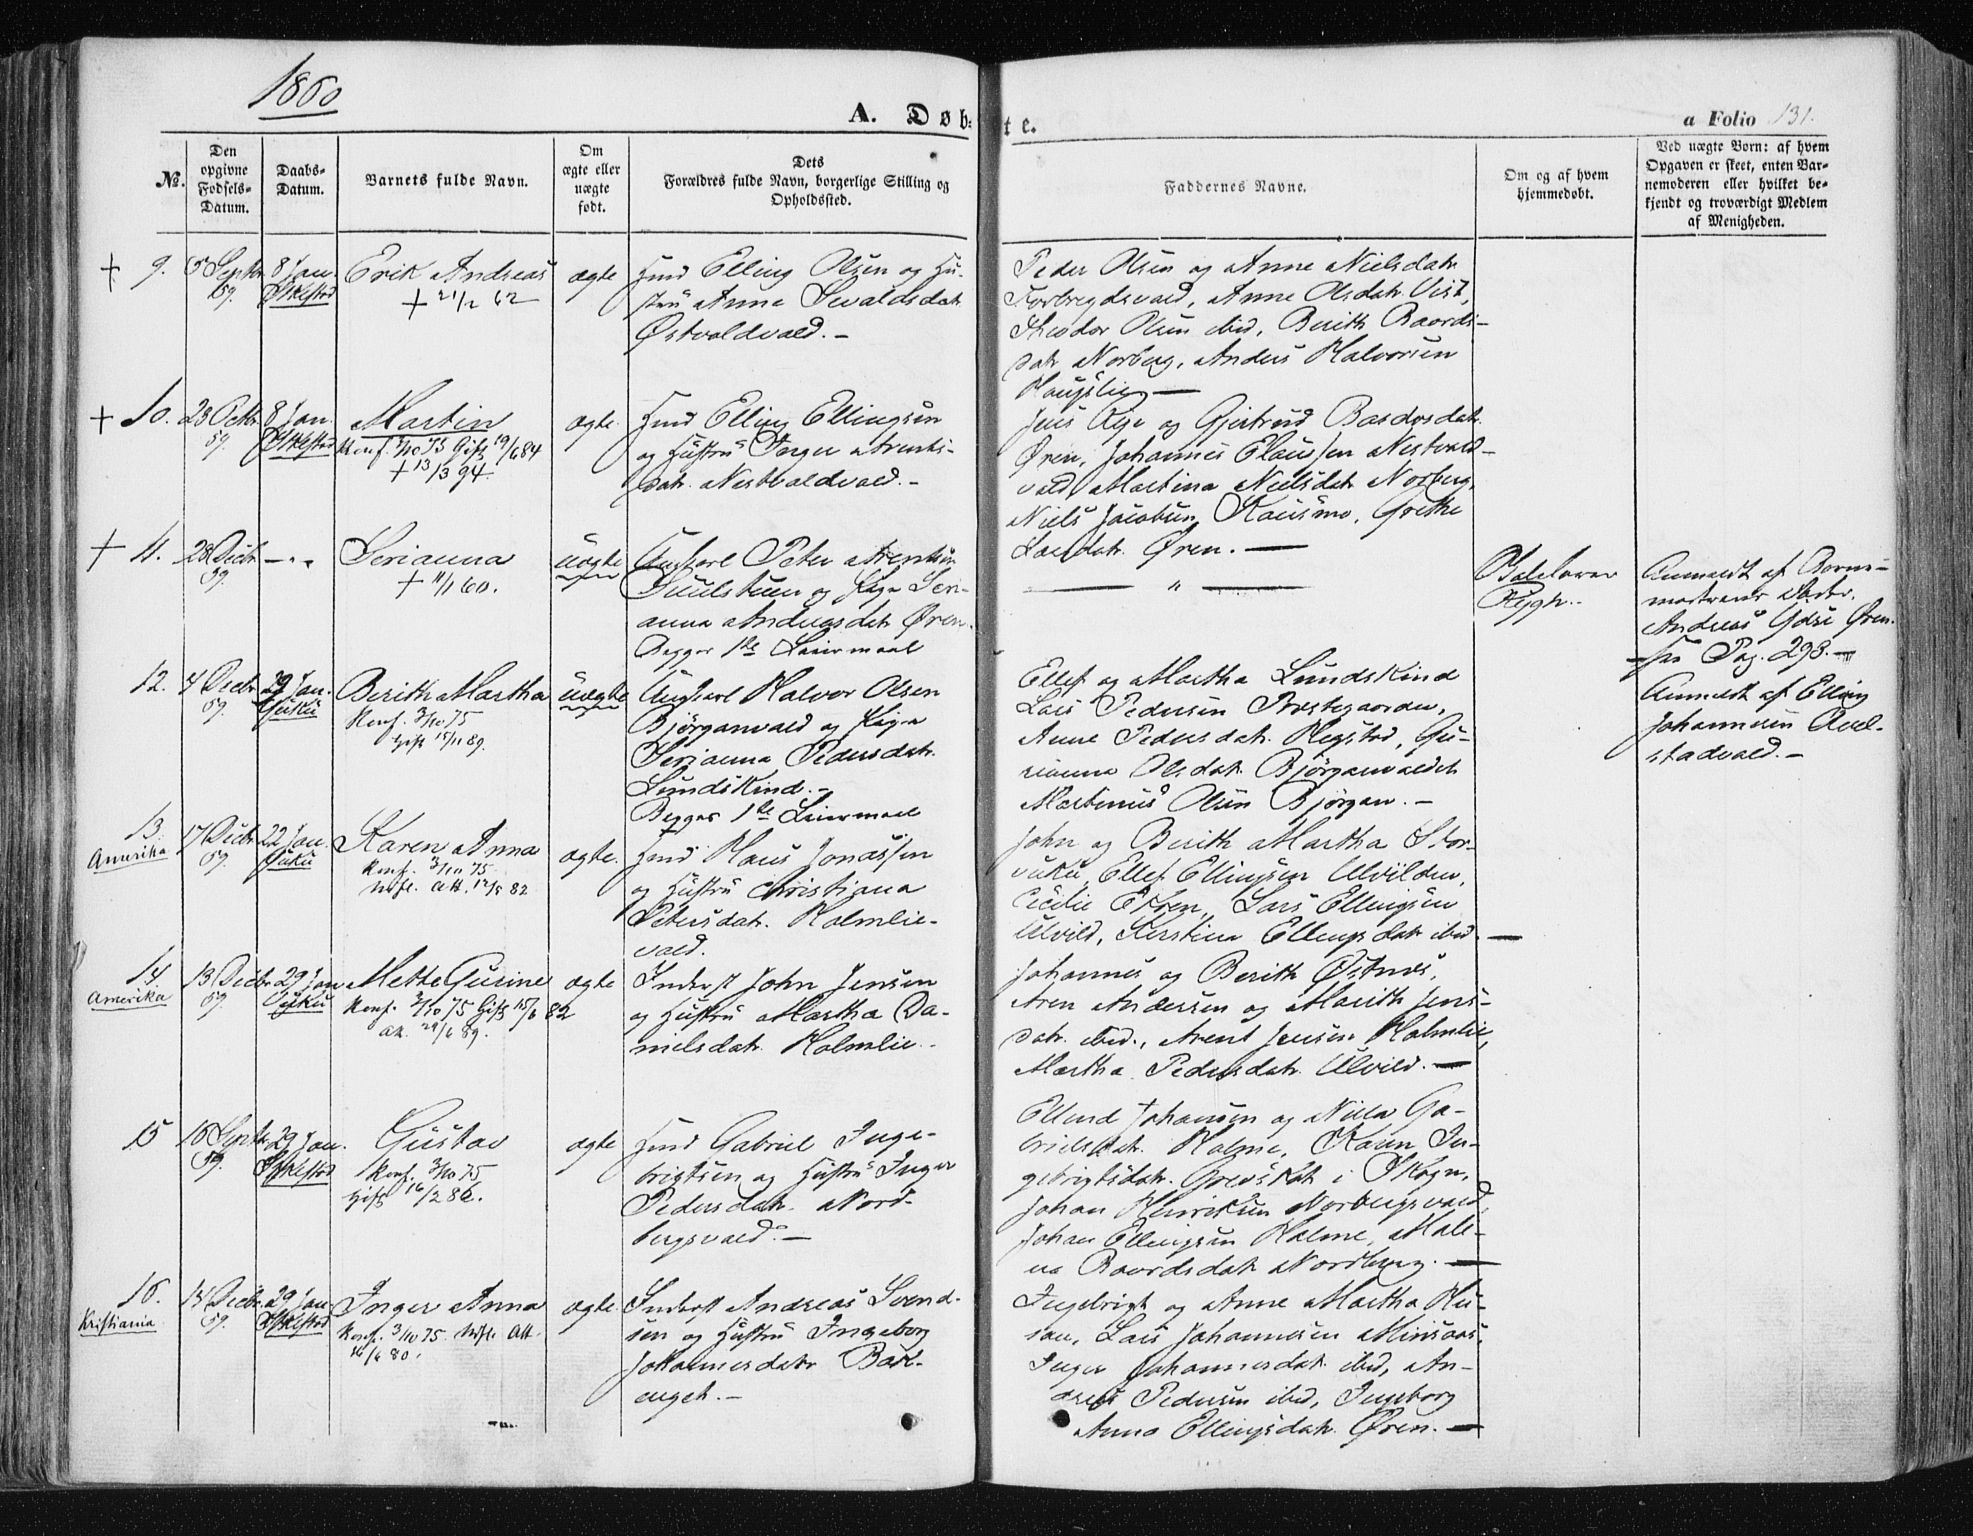 1860
A. Døb-
te.
a Folio 131.
No.
Den opgivne Fødsels-Datum.
Daabs-Datum.
Barnets fulde Navn.
Om ægte eller uægte født.
Dets Forældres fulde Navn, borgerlige Stilling og Opholdssted.
Faddernes Navne.
Om og af hvem hjemmedøbt.
Ved uægte Børn: af hvem Opgaven er skeet, enten Barnemoderen eller hvilket bekjendt og troværdigt Medlem af Menigheden.
+ 9.
5 Septbr 59.
8 Jan.
Erik Andreas
+ 21/2 62
ægte
Hmd Elling Olsen og Hu-
stru Anne Sevaldsdatr
Østvoldvald. -
Peder Olsen og Anne Nielsdatr
Forbregdsvald, Anne Olsdatr. Vist,
Theodor Olsen ibid, Berith Baards-
datr Norberg, Anders Halvorsen
Haugslie
+ 10.
23 Octbr 59.
8 Jan.
Martin
Konf. 3/10 75 Gift 19/6 84
+ 13/3 94.
ægte.
Hmd Elling Ellingsen
og Hustru Inger Arents-
datr. Nestvoldvald. -
Jens Rye og Gjertrud Bardosdatr.
Øren, Johannes Clausen Nestvald-
vald, Martina Nielsdatr Norberg,
Niels Jacobsen Kausmo, Grethe
Larsdatr. Øren. -
+ 11.
28 Decbr 59.
- " -
Serianna
+ 11/1 60.
uægte
Ungkarl Peter Arentsen
og Pige Seri-
anna Andreasdatr Øren.
Begges 1ste Leiermaal
- " -
Rygh.
Anmeldt af Barne-
moderens Fader,
Andreas Øren.
see Pag. 298. -
12.
4 Decbr 59.
29 Jan. Vuku
Berith Martha
Konf. 3/10 75
Gift 15/11 89.
uægte
Ungkarl Halvor Olsen
Bjørganvald og Pige
Serianna Pedersdatr.
Lundskind. -
Begges 1ste Leiermaal
Ellef og Martha Lundskind
Lars Pedersen Præstegaarden,
Anne Pedersdatr. Hegstad, Gu-
rianna Olsdatr. Bjørganvaldet
Martinus Olsen Bjørgan. -
Anmeldt af Elling
Johannesen Auel-
stadvald. -
13.
Amerika
17 Decbr 59.
22 Jan. Vuku
Karen Anna
Konf. 3/10 75
Utfl. Att. 12/5 82
ægte.
Hmd Hans Jonassen
og Hustru Christiana
Petersdatr. Holmlie-
vald.
John og Berith Martha Stor-
vuku, Ellef Ellingsen Ulvilden,
Cecilie Ekren, Lars Ellingsen
Ulvild, Kerstina Ellingsdatr ibid. -
14.
Amerika
13 Decbr 59.
29 Jan Vuku
Mette Gurine
Konf. 3/10 75 Gift 15/6 82
Att. 29/6 89.
ægte
Inderst John Jensen
og Hustru Martha Da-
nielsdatr. Holmlie.
Johannes og Berith Østnes,
Aren Andersen og Marith Jens-
datr. ibid., Arent Jensen Holmlie,
Martha Pedersdatr. Ulvild. -
15
16 Septbr 59.
29 Jan.
Gustav
Konf. 3/10 75
Gift 16/2 86.
ægte
Hmd Gabriel Inge-
brigtsen og Hustru Inger
Pedersdatr. Nord-
bergsvald. -
Ellend Johansen og Nilla Ga-
brielsdatr. Holme, Karen In-
gebrigtsdatr. i Skogn,
Johan Henriksen Norbergsvald,
Johan Ellingsen Holme, Male-
na Baardsdatr Nordberg. -
16.
Kristiania
15 Decbr 59.
29 Jan
Inger Anna
Konf. 3/10 75. Utfl. Att.
16/6 80.
ægte.
Inderst Andreas Svend-
sen og Hustru Ingeborg
Johannesdatr Bak-
enget. -
Ingebrigt og Anne Martha Hu-
san, Lars Johannesen Minsaas,
Inger Johannesdatr ibid, An-
dreas Pedersen ibid, Ingeborg
Anna Ellingsdatr. Øren. -